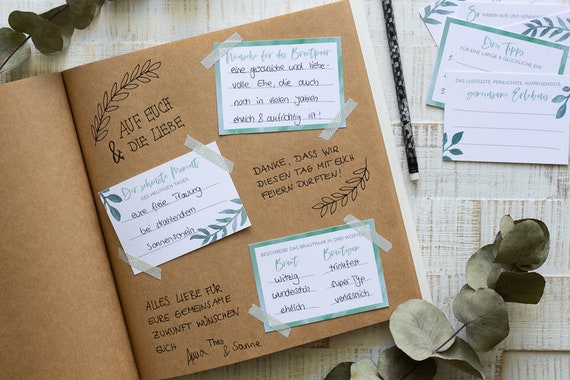 Wünsche für das Brautpaar
eine glückliche und liebe-
volle Ehe, die auch
noch in vielen Jahren
ehrlich & aufrichtig ist!
AUF EUCH
& DIE LIEBE
Der schönste Moment
DES HEUTIGEN TAGES
eure freie Trauung
bei strahlendem
Sonnenschein
DANKE, DASS WIR
DIESEN TAG MIT EUCH
FEIERN DURFTEN!
BESCHREIBE DAS BRAUTPAAR IN DREI WORTEN
Braut Bräutigam
witzig trinkfest
wunderschön super Typ
ehrlich verlässlich
ALLES LIEBE FÜR
EURE GEMEINSAME
ZUKUNFT WÜNSCHEN
EUCH
Anna, Theo & Sanne
So HABEN WIR UNS KENNEN
Drei Tipps
FÜR EINE LANGE & GLÜCKLICHE EHE
DAS LUSTIGSTE, PEINLICHSTE, AUFREGENDSTE
gemeinsame Erlebnis